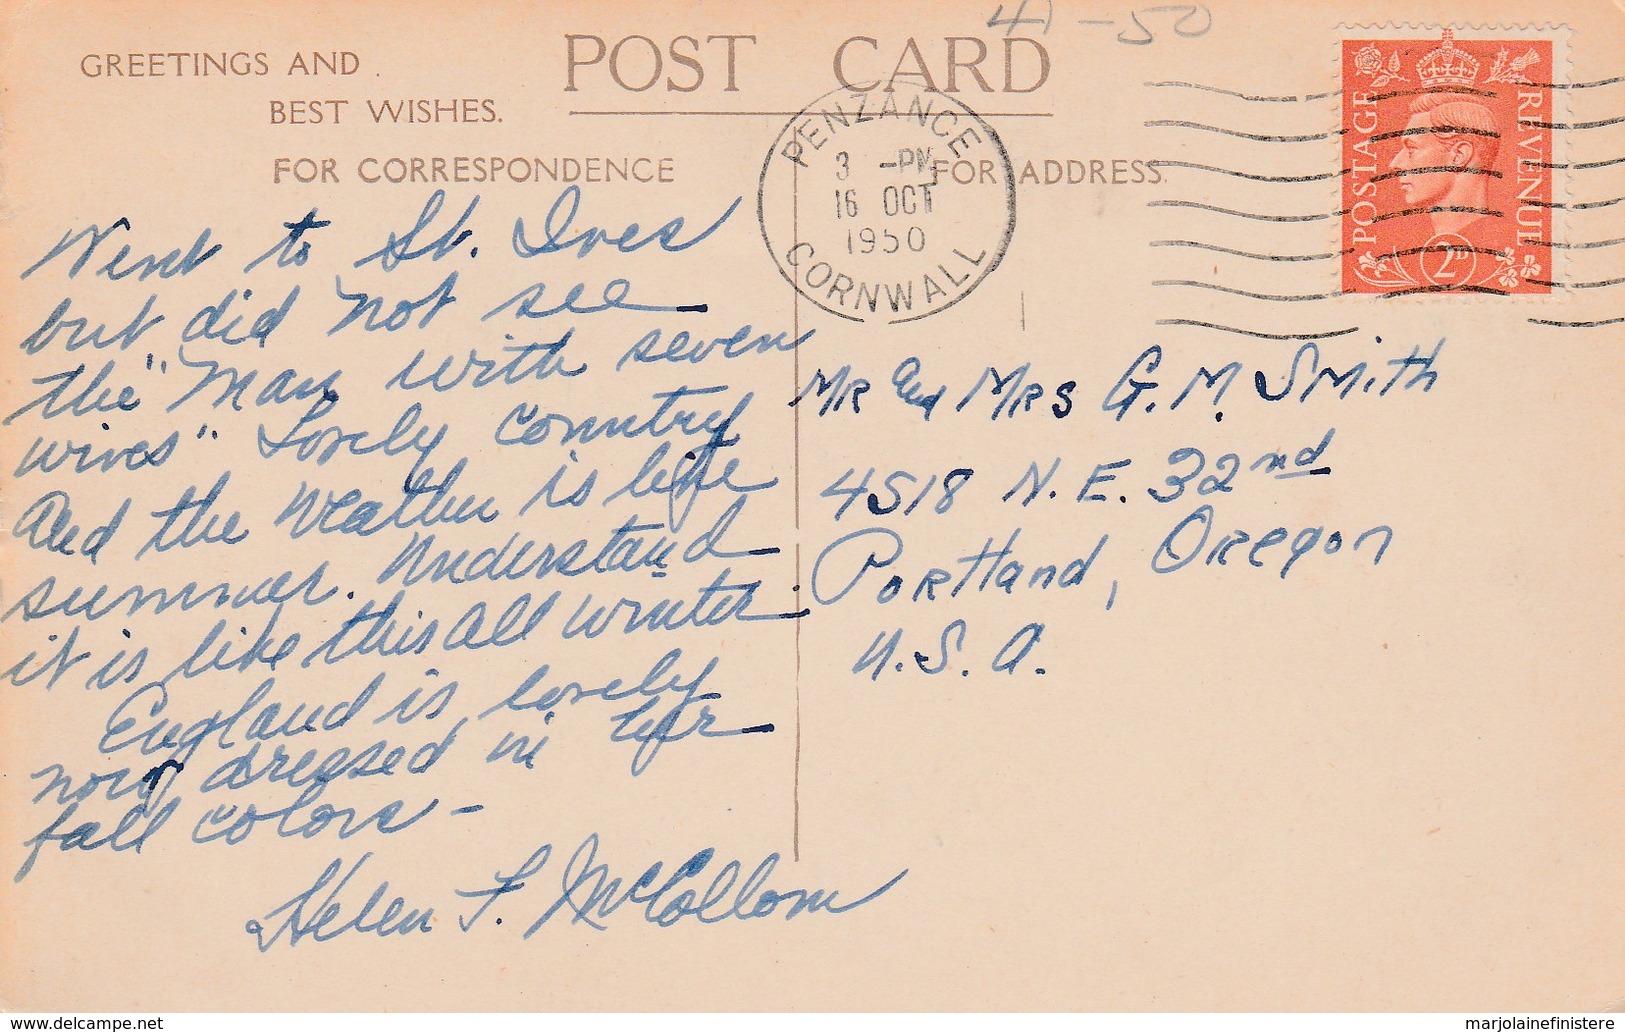 41-50
GREETINGS AND
BEST WISHES.
POST CARD
FOR CORRESPONDENCE
FOR ADDRESS.
PENZANCE
3 -PM
16 OCT
1950
CORNWALL
POSTAGE
REVENUE
2D
Went to St. Ives
but did not see
the "Man with seven
wives" Lovely country
and the weather is like
summer. Understand
it is like this all winter.
England is lovely
now dressed in her
fall colors -
Helen F. McCollom
Mr and Mrs G. M. Smith
4518 N. E. 32nd
Portland, Oregon
U. S. A.
www.delcampe.net
marjolainefinistere